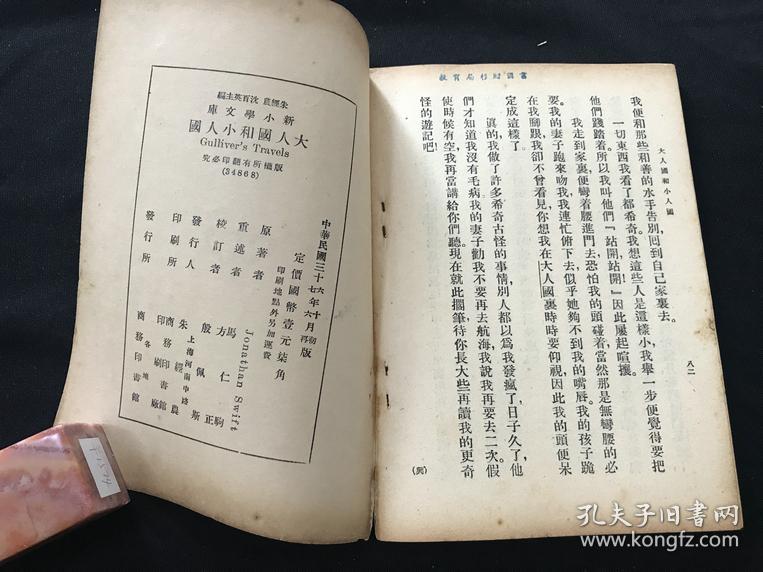 大人國和小人國
八二
我便和那些和善的水手告別，回到自己家裏去。
一切東西我看了都希奇。我想這些人是這樣小，我舉一步便覺得要把
他們踐踏着。所以我叫他們『站開，站開！』因此屢起喧攘。
我走到家裏，便彎着腰進門去，恐怕我的頭碰着。當然那是無彎腰的必
要。我的妻子跑來吻我，我連忙俯下去，似乎她夠不到我的嘴唇。我的孩子跪
在我脚跟，我卻不曾看見，你想我在大人國裏時時要仰視，因此我的頭便呆
定成這樣了。
眞的，我做了許多希奇古怪的事情，別人都以爲我發瘋了，日子久了，他
們才知道我沒有毛病。我的妻子勸我不要再去航海，我說我再要去二次。假
使時候有空，我再當講給你們聽。現在就此擱筆，待你長大些再讀我的更奇
怪的遊記吧！
(完)
朱經農 沈百英主編
新小學文庫
大人國和小人國
Gulliver's Travels
版權所有翻印必究
(34868)
中華民國三十六年十月初版
七年六月再版
定價國幣壹元柒角
印刷地點外另加運費
原著者 Jonathan Swift
重述者 馬仁駒
校訂者 方佩正
發行人 殷經斯
上海河南中路
朱經農
印刷所 商務印刷廠
印書館
發行所 各地
商務印書館
孔夫子旧书网
www.kongfz.com